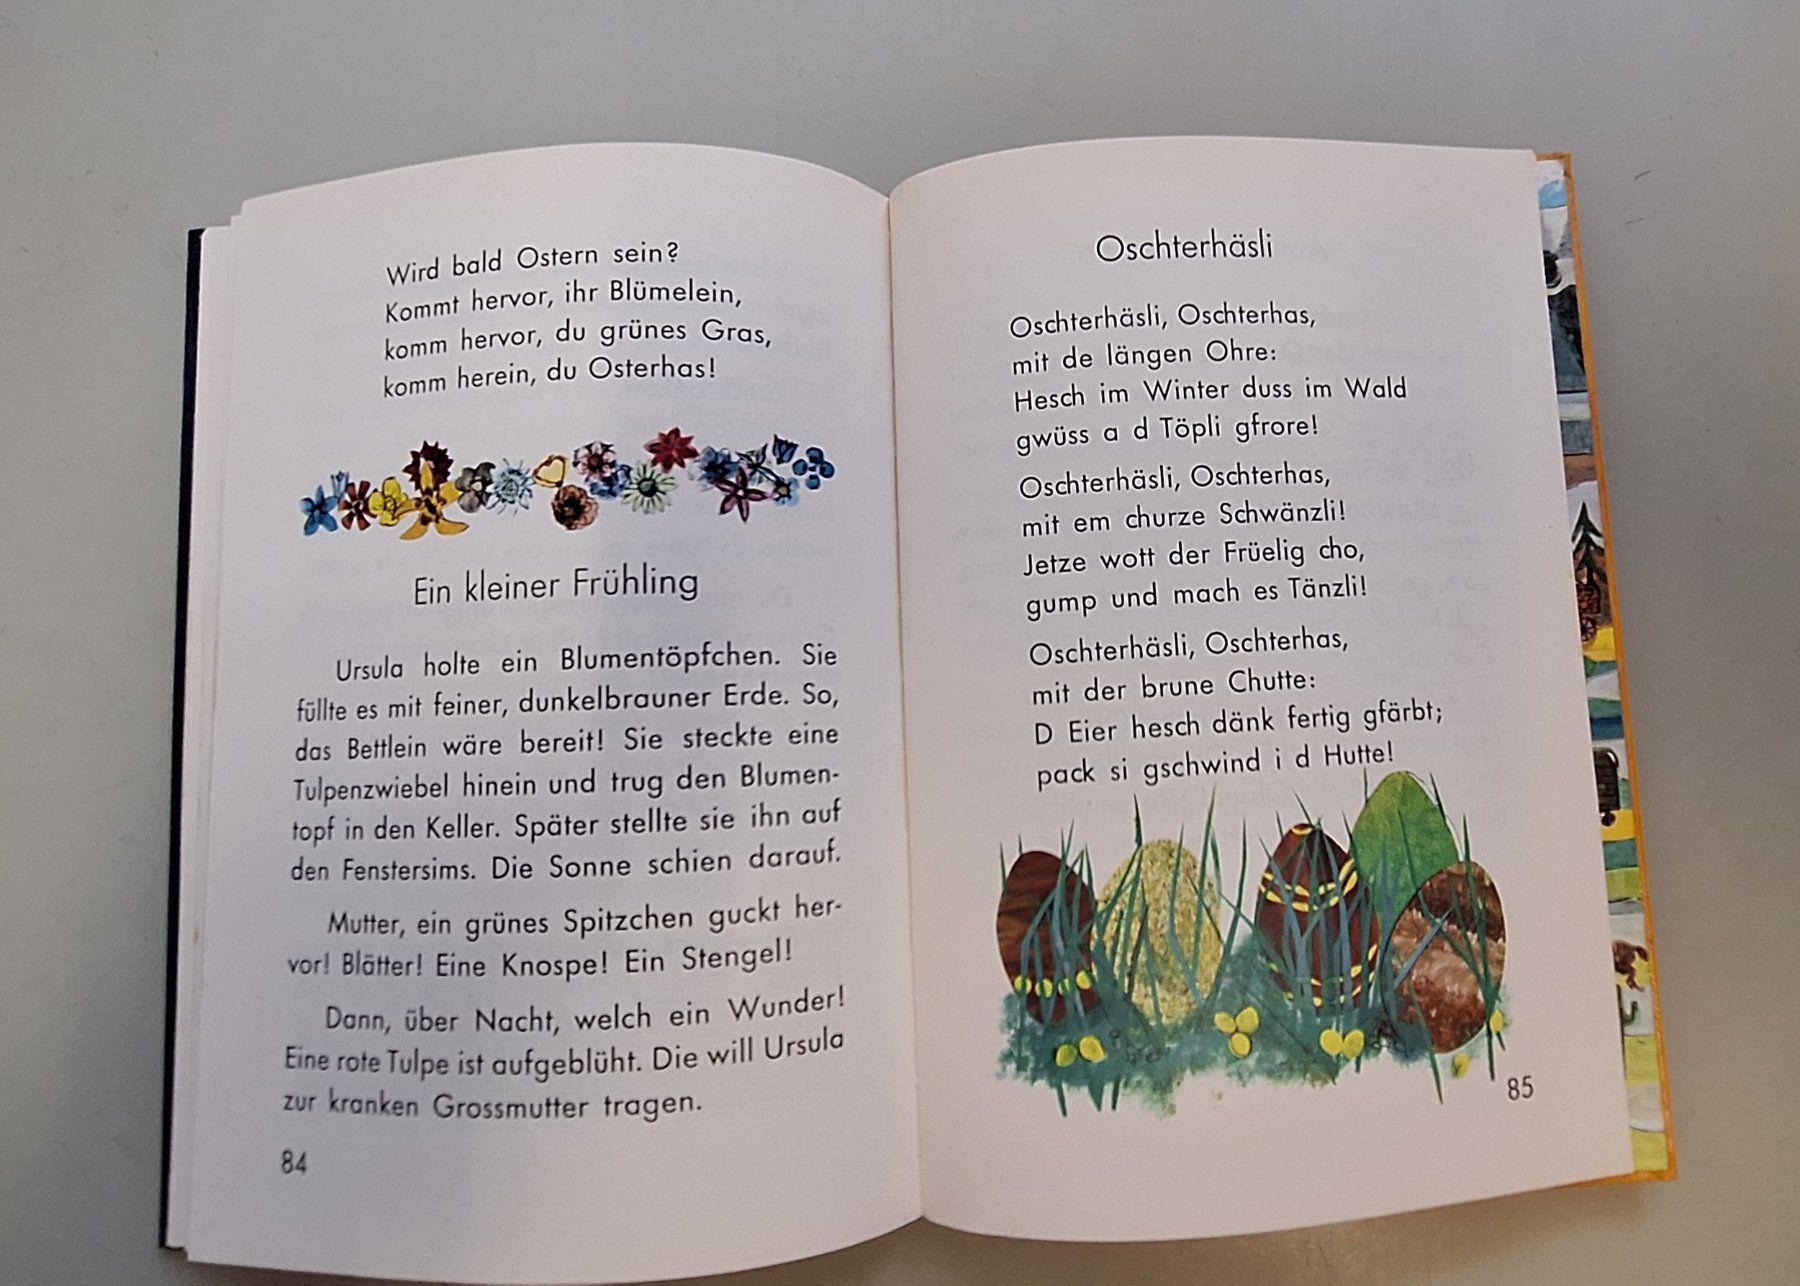 Wird bald Ostern sein?
Kommt hervor, ihr Blümelein,
komm hervor, du grünes Gras,
komm herein, du Osterhas!
Ein kleiner Frühling
Ursula holte ein Blumentöpfchen. Sie
füllte es mit feiner, dunkelbrauner Erde. So,
das Bettlein wäre bereit! Sie steckte eine
Tulpenzwiebel hinein und trug den Blumen-
topf in den Keller. Später stellte sie ihn auf
den Fenstersims. Die Sonne schien darauf.
Mutter, ein grünes Spitzchen guckt her-
vor! Blätter! Eine Knospe! Ein Stengel!
Dann, über Nacht, welch ein Wunder!
Eine rote Tulpe ist aufgeblüht. Die will Ursula
zur kranken Grossmutter tragen.
84
Oschterhäsli
Oschterhäsli, Oschterhas,
mit de längen Ohre:
Hesch im Winter duss im Wald
gwüss a d Töpli gfrore!
Oschterhäsli, Oschterhas,
mit em churze Schwänzli!
Jetze wott der Früelig cho,
gump und mach es Tänzli!
Oschterhäsli, Oschterhas,
mit der brune Chutte:
D Eier hesch dänk fertig gfärbt;
pack si gschwind i d Hutte!
85